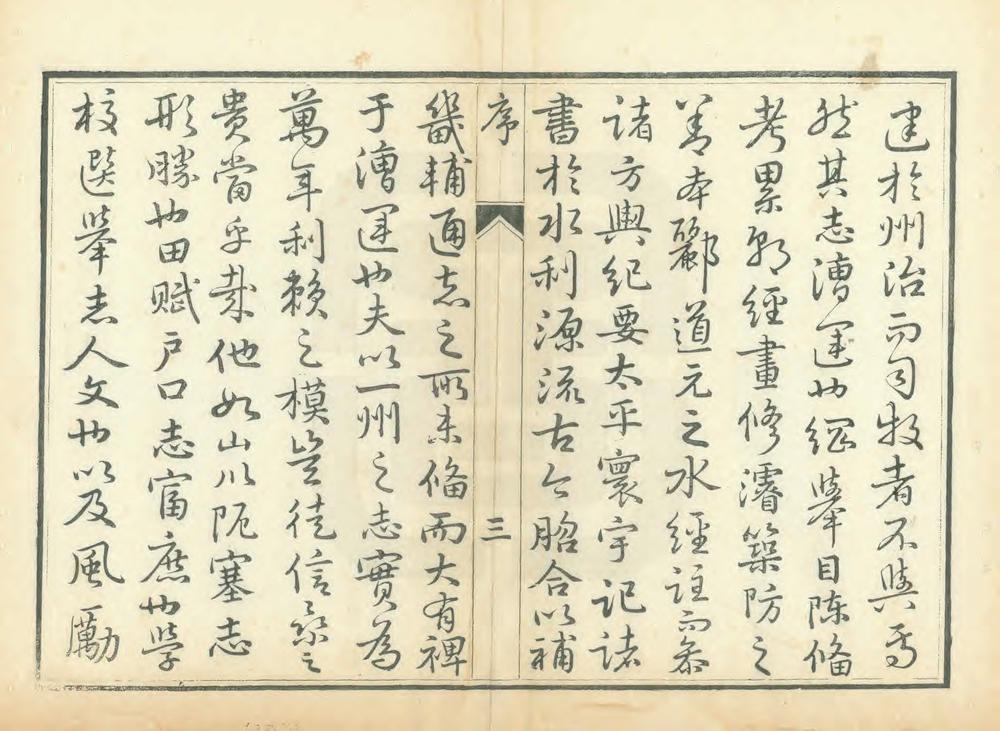 建於州治而司牧者不與焉
然其志漕運也綱舉目陳備
考累朝經畫修濬築防之
善本酈道元之水經註而叅
諸方輿紀要太平寰宇記諸
書於水利源流古今脗合以補
序
三
畿輔通志之所未備而大有裨
于漕運也夫以一州之志實為
萬年利賴之模豈徒信今之
貴當乎哉他如山川阨塞志
形勝也田賦戶口志富庶也學
校選舉志人文也以及風勵